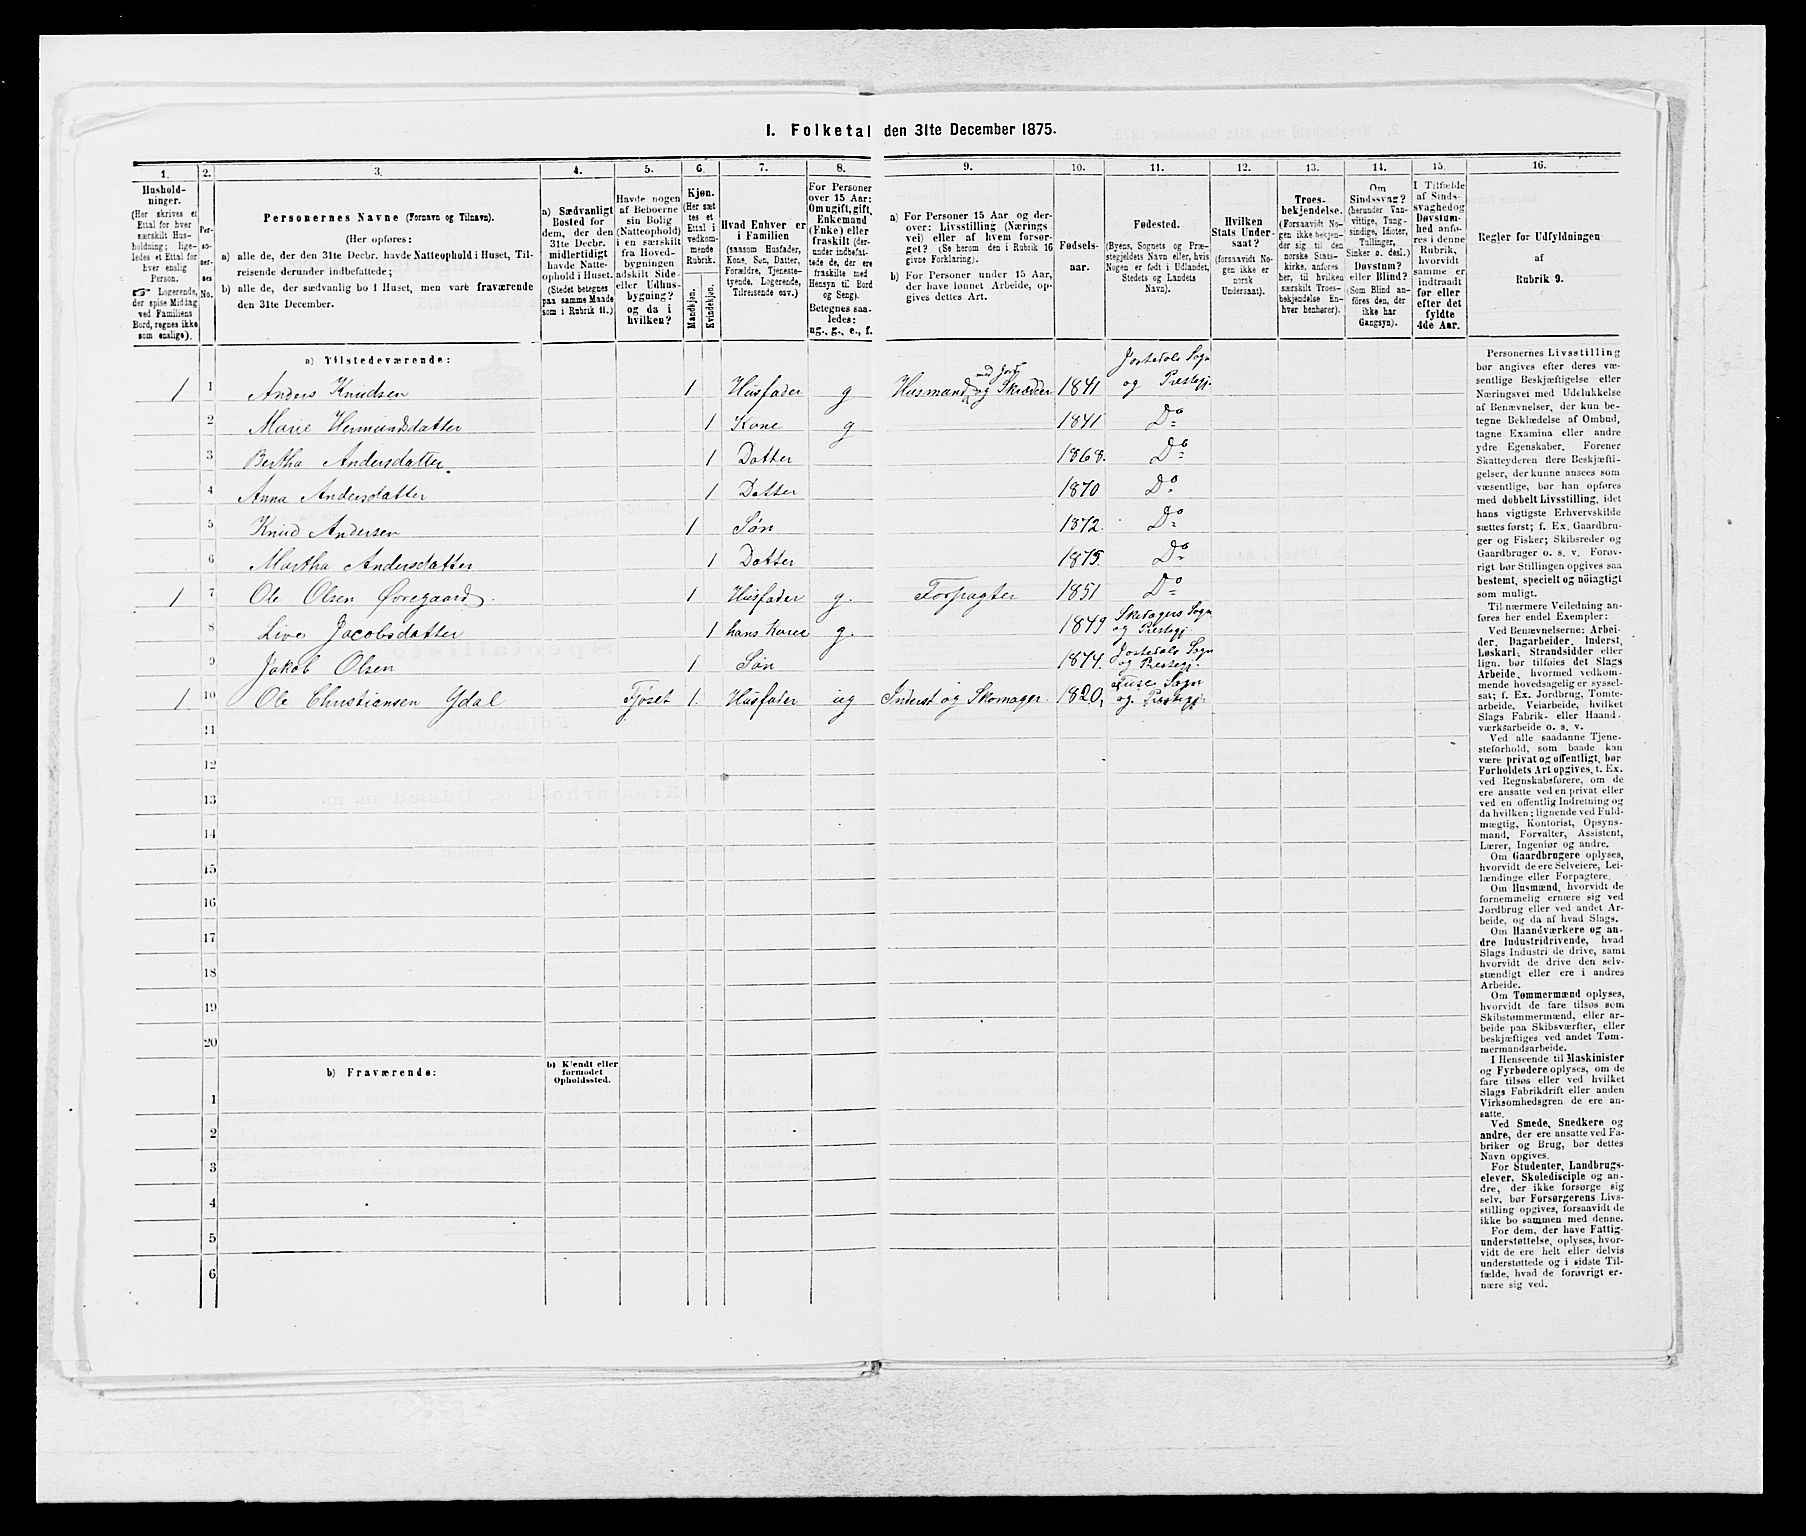 1. Folketal den 31te December 1875.
1. 2. 3. 4. 5. 6. 7. 8. 9. 10. 11. 12. 13. 14. 15. 16.
Hushold-
ninger.
(Her skrives et
Ettal for hver
særskilt Hus-
holdning; lige-
ledes et Ettal for
hver enslig
Person.
☞ Logerende,
der spise Middag
ved Familiens
Bord, regnes ikke
som enslige).
Per-
so-
ner-
nes
No.
Personernes Navne (Fornavn og Tilnavn).
(Her opføres:
a) alle de, der den 31te Decbr. havde Natteophold i Huset, Til-
reisende derunder indbefattede;
b) alle de, der sædvanlig bo i Huset, men vare fraværende
den 31te December.
a) Sædvanligt
Bosted for
dem, der den
31te Decbr.
midlertidigt
havde Natte-
ophold i Huset.
(Stedet betegnes
paa samme Maade
som i Rubrik 11.)
Havde nogen
af Beboerne
sin Bolig
(Natteophold)
i en særskilt
fra Hoved-
bygningen
adskilt Side-
eller Udhus-
bygning?
og da i
hvilken?
Kjøn.
(Her sæt-
tes et
Ettal i
vedkom-
mende
Rubrik.
Mandkjøn.
Kvindekjøn.
Hvad Enhver er
i Familien
(saasom Husfader,
Kone, Søn, Datter,
Forældre, Tjeneste-
tyende, Logerende,
Tilreisende osv.)
For Personer
over 15 Aar:
Om ugift, gift,
Enkemand
(Enke) eller
fraskilt (der-
under indbefat-
tede de, der
ere fraskilte
med Hensyn til Bord
og Seng).
Betegnes saa-
ledes:
ug., g., e., f.
a) For Personer 15 Aar og der-
over: Livsstilling (Nærings-
vei) eller af hvem forsør-
get? (Se herom den i Rubrik 16
givne Forklaring).
b) For Personer under 15 Aar,
der have lønnet Arbeide, op-
gives dettes Art.
Fødsels-
aar.
Fødested.
(Byens, Sognets og Præ-
stegjeldets Navn eller, hvis
Nogen er født i Udlandet,
Stedets og Landets
Navn).
Hvilken
Stats Under-
saat?
(forsaavidt No-
gen ikke er
norsk
Undersaat).
Troes-
bekjendelse.
(Forsaavidt No-
gen ikke bekjen-
der sig til den
norske Stats-
kirke, anføres
her, til hvilken
særskilt Troes-
bekjendelse En-
hver henhører).
Om
Sindssvag?
(herunder Van-
vittige, Tung-
sindige, Idioter,
Tullinger,
Sinker o. desl.)
Døvstum?
eller Blind?
(Som Blind an-
føres den, der
ikke har
Gangsyn).
I Tilfælde
af Sinds-
svaghed og
Døvstum-
hed anfø-
res i denne
Rubrik,
hvorvidt
samme er
indtraadt
før eller
efter det
fyldte
4de Aar.
Regler for Udfyldningen
af
Rubrik 9.
a) Tilstedeværende:
1 1 Anders Knudsen 1 Husfader g Husmand med Jord og Skrædder 1841 Jostedals Sogn og Prestegj.
2 Marie Hermundsdatter 1 Kone g 1841 Do
3 Bertha Andersdatter. 1 Datter 1868. Do
4 Anna Andersdatter 1 Datter 1870 Do
5 Knud Andersen 1 Søn 1872. Do
6 Martha Andersdatter 1 Datter 1875. Do
1 7 Ole Olsen Øvregaard. 1 Husfader g. Forpagter 1851 Do
8 Live Jacobsdatter 1 hans Kone g. 1849 Sogn og Prestegj.
9 Jakob Olsen 1 Søn 1874. Jostedals Sogn og Prestegj.
1 10 Ole Christiansen Ydal Fjøset 1. Husfader ug Inderst og Skomager. 1820, Fuse Sogn og Prestegj.
11
12
13
14
15
16
17
18
19
20
b) Fraværende:
b) Kjendt eller
formodet
Opholdssted.
1
2
3
4
5
6
Personernes Livsstilling
bør angives efter deres væ-
sentlige Beskjæftigelse eller
Næringsvei med Udelukkelse
af Benævnelser, der kun be-
tegne Beklædelse af Ombud,
tagne Examina eller andre
ydre Egenskaber. Forener
Skatteyderen flere Beskjæfti-
gelser, der kunne ansees som
væsentlige, bør han opføres
med dobbelt Livsstilling, idet
hans vigtigste Erhvervskilde
sættes først; f. Ex. Gaardbru-
ger og Fisker; Skibsreder og
Gaardbruger o. s. v. Forøv-
rigt bør Stillingen opgives saa
bestemt, specielt og nøiagtigt
som muligt.
Til nærmere Veiledning an-
føres her endel Exempler:
Ved Benævnelserne: Arbei-
der, Dagarbeider, Inderst,
Løskarl, Strandsidder eller
lign. bør tilføies det Slags
Arbeide, hvormed vedkom-
mende hovedsagelig er syssel-
sat; f. Ex. Jordbrug, Tomte-
arbeide, Veiarbeide, hvilket
Slags Fabrik- eller Haand-
værksarbeide o. s. v.
Ved alle saadanne Tjene-
steforhold, som baade kan
være privat og offentligt, bør
Forholdets Art opgives, t. Ex.
ved Regnskabsførere, om de
ere ansatte ved en privat eller
ved en offentlig Indretning og
da hvilken; lignende ved Fuld-
mægtig, Kontorist, Opsyns-
mand, Forvalter, Assistent,
Lærer, Ingeniør og andre.
Om Gaardbrugere oplyses,
hvorvidt de ere Selveiere, Lei-
lændinge eller Forpagtere.
Om Husmænd, hvorvidt de
fornemmelig ernære sig ved
Jordbrug eller ved andet Ar-
beide, og da af hvad Slags.
Om Haandværkere og an-
dre Industridrivende, hvad
Slags Industri de drive, samt
hvorvidt de drive den selv-
stændigt eller ere i andres
Arbeide.
Om Tømmermænd oplyses,
hvorvidt de fare tilsøs som
Skibstømmermænd, eller ar-
beide paa Skibsværfter, eller
beskjæftiges ved andet Tøm-
mermandsarbeide.
I Henseende til Maskinister
og Fyrbødere oplyses, om de
fare tilsøs eller ved hvilket
Slags Fabrikdrift eller anden
Virksomhedsgren de ere an-
satte.
Ved Smede, Snedkere og
andre, der ere ansatte ved Fa-
briker og Brug, bør dettes
Navn opgives.
For Studenter, Landbrugs-
elever, Skoledisciple og an-
dre, der ikke forsørge sig
selv, bør Forsørgerens Livs-
stilling opgives, forsaavidt de
ikke bo sammen med denne.
For dem, der have Fattig-
understøttelse, oplyses, hvor-
vidt de ere helt eller delvis
understøttede og i sidste Til-
fælde, hvad de forøvrigt er-
nære sig ved.